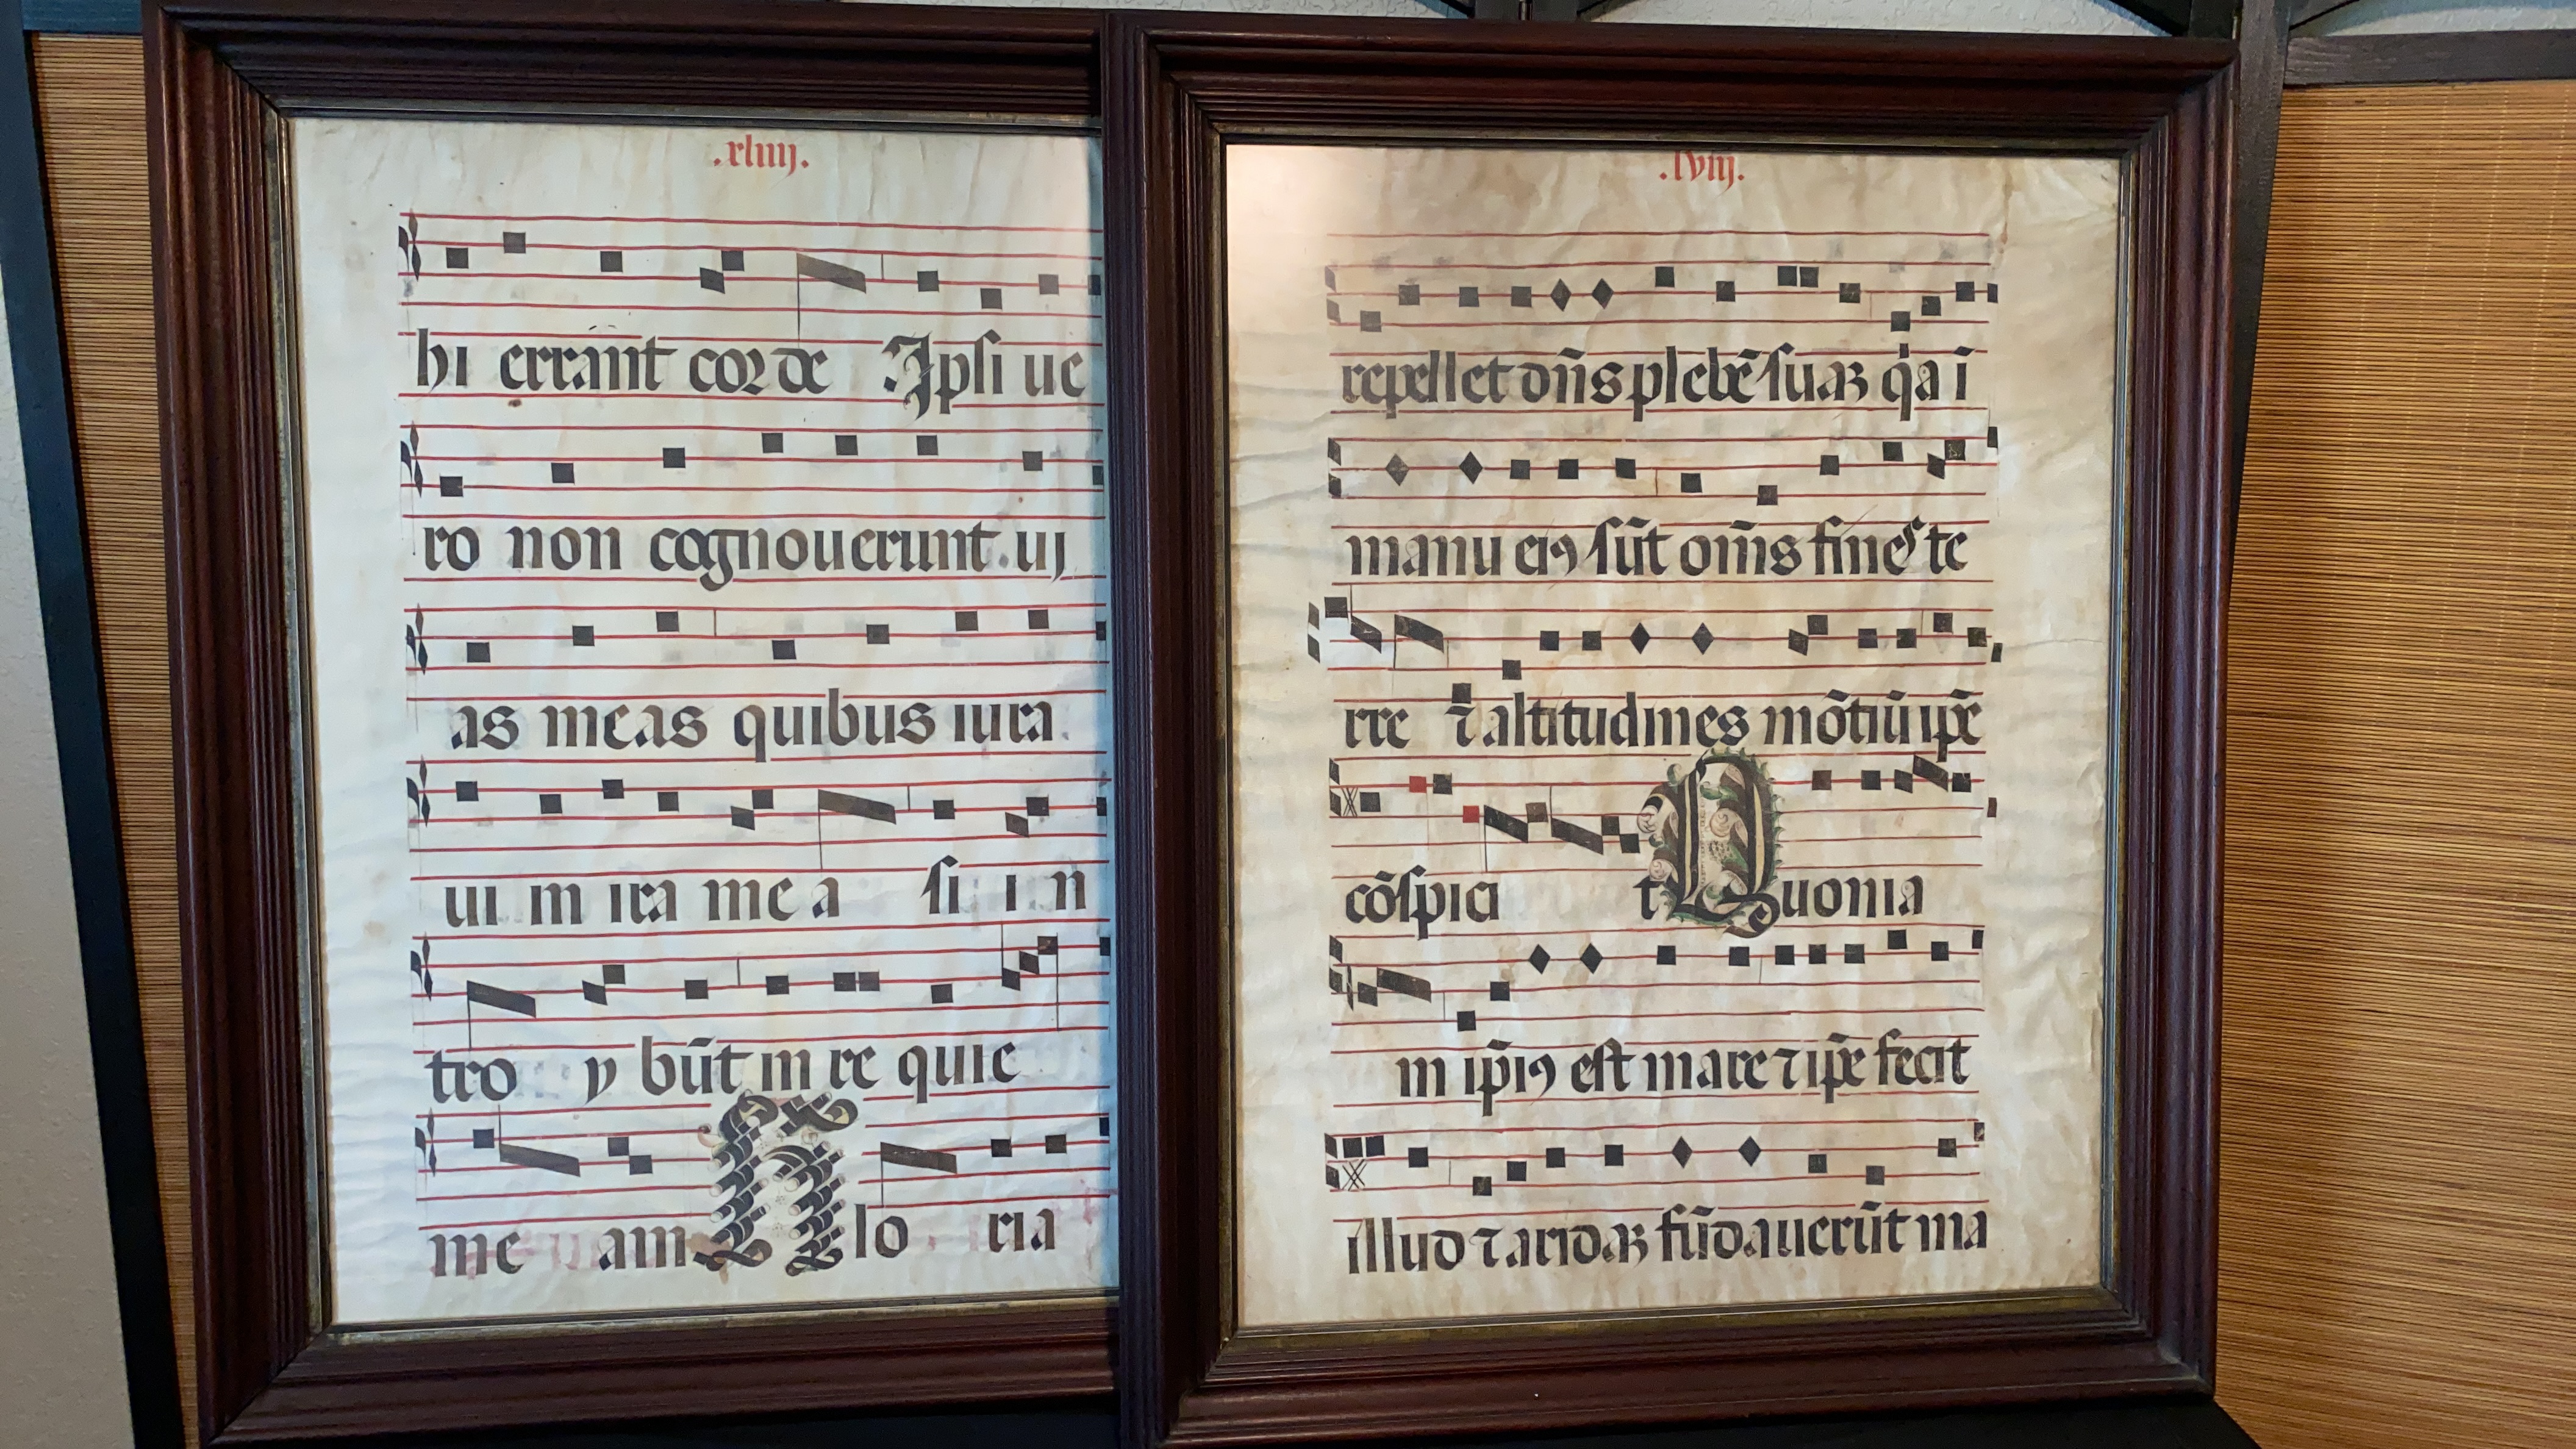 .xliiij.
hi errant corde Ipsi ue
ro non cognouerunt uj
as meas quibus iura
ui in ira mea si i n
tro y būt in re quie
me am Glo ria
.lviij.
repellet dn̄s plebē suaꝫ q̇a ī
manu eiꝰ sūt om̄s fines te
rre ⁊ altitudines mōtiū ip̄e
cōspici t Quonia
m ip̄iꝰ est mare ⁊ ip̄e fecit
illud ⁊ aridaꝫ fūdauerūt ma